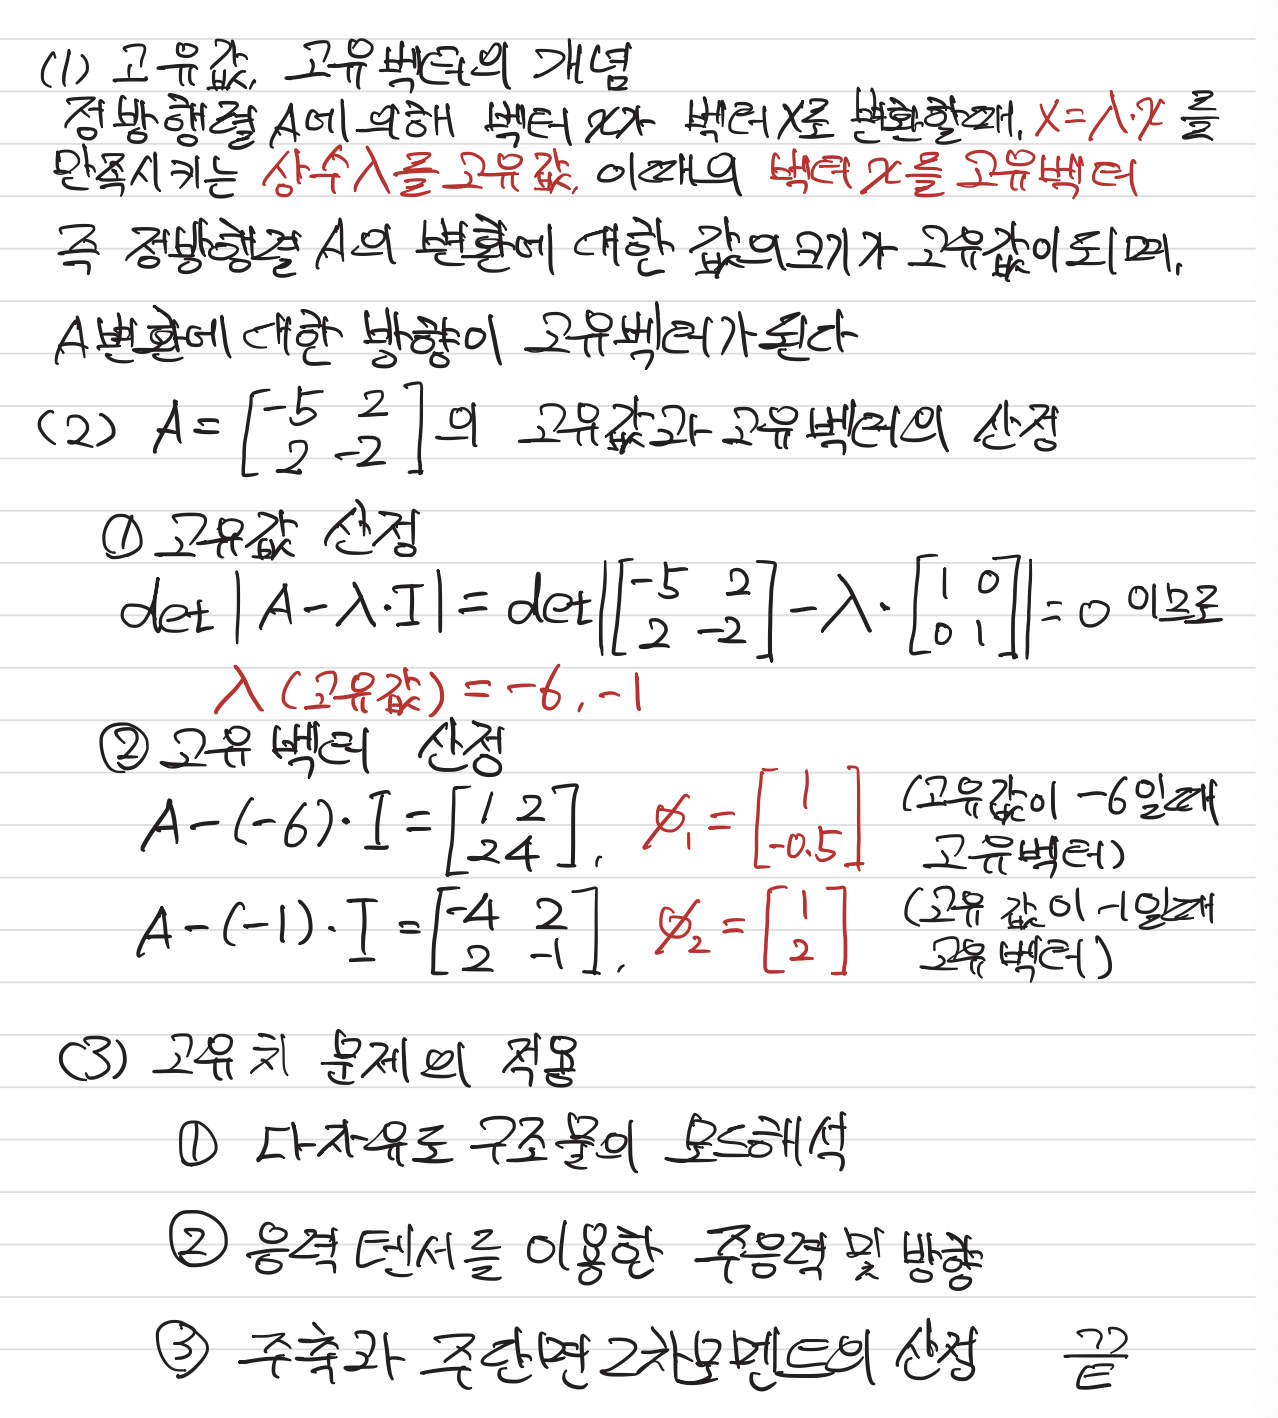 (1) 고유값, 고유벡터의 개념
정방행렬 A에 의해 벡터 x가 벡터 X로 변환할때, X=λ·x 를
만족시키는 상수λ를 고유값, 이때의 벡터 x를 고유벡터
즉 정방행렬 A의 변환에 대한 값의크기가 고유값이되며,
A변환에 대한 방향이 고유벡터가된다
(2) A = [-5 2; 2 -2] 의 고유값과 고유벡터의 산정
① 고유값 산정
det | A-λ·I | = det |[-5 2; 2 -2] - λ·[1 0; 0 1]| = 0 이므로
λ (고유값) = -6, -1
② 고유 벡터 산정
A-(-6)·I = [1 2; 2 4], ø₁ = [1; -0.5] (고유값이 -6일때
고유벡터)
A-(-1)·I = [-4 2; 2 -1], ø₂ = [1; 2] (고유 값이 -1일때
고유 벡터)
(3) 고유치 문제의 적용
① 다자유도 구조물의 모드해석
② 응력 텐서를 이용한 주응력 및 방향
③ 주축과 주단면2차모멘트의 산정 끝